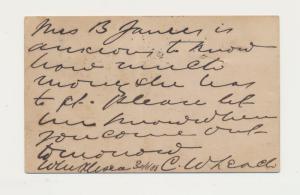 Mrs B James is
anxious to know
how much
money she has
to pt. Please let
her know when
you come out
tomorrow
C. W. Leach